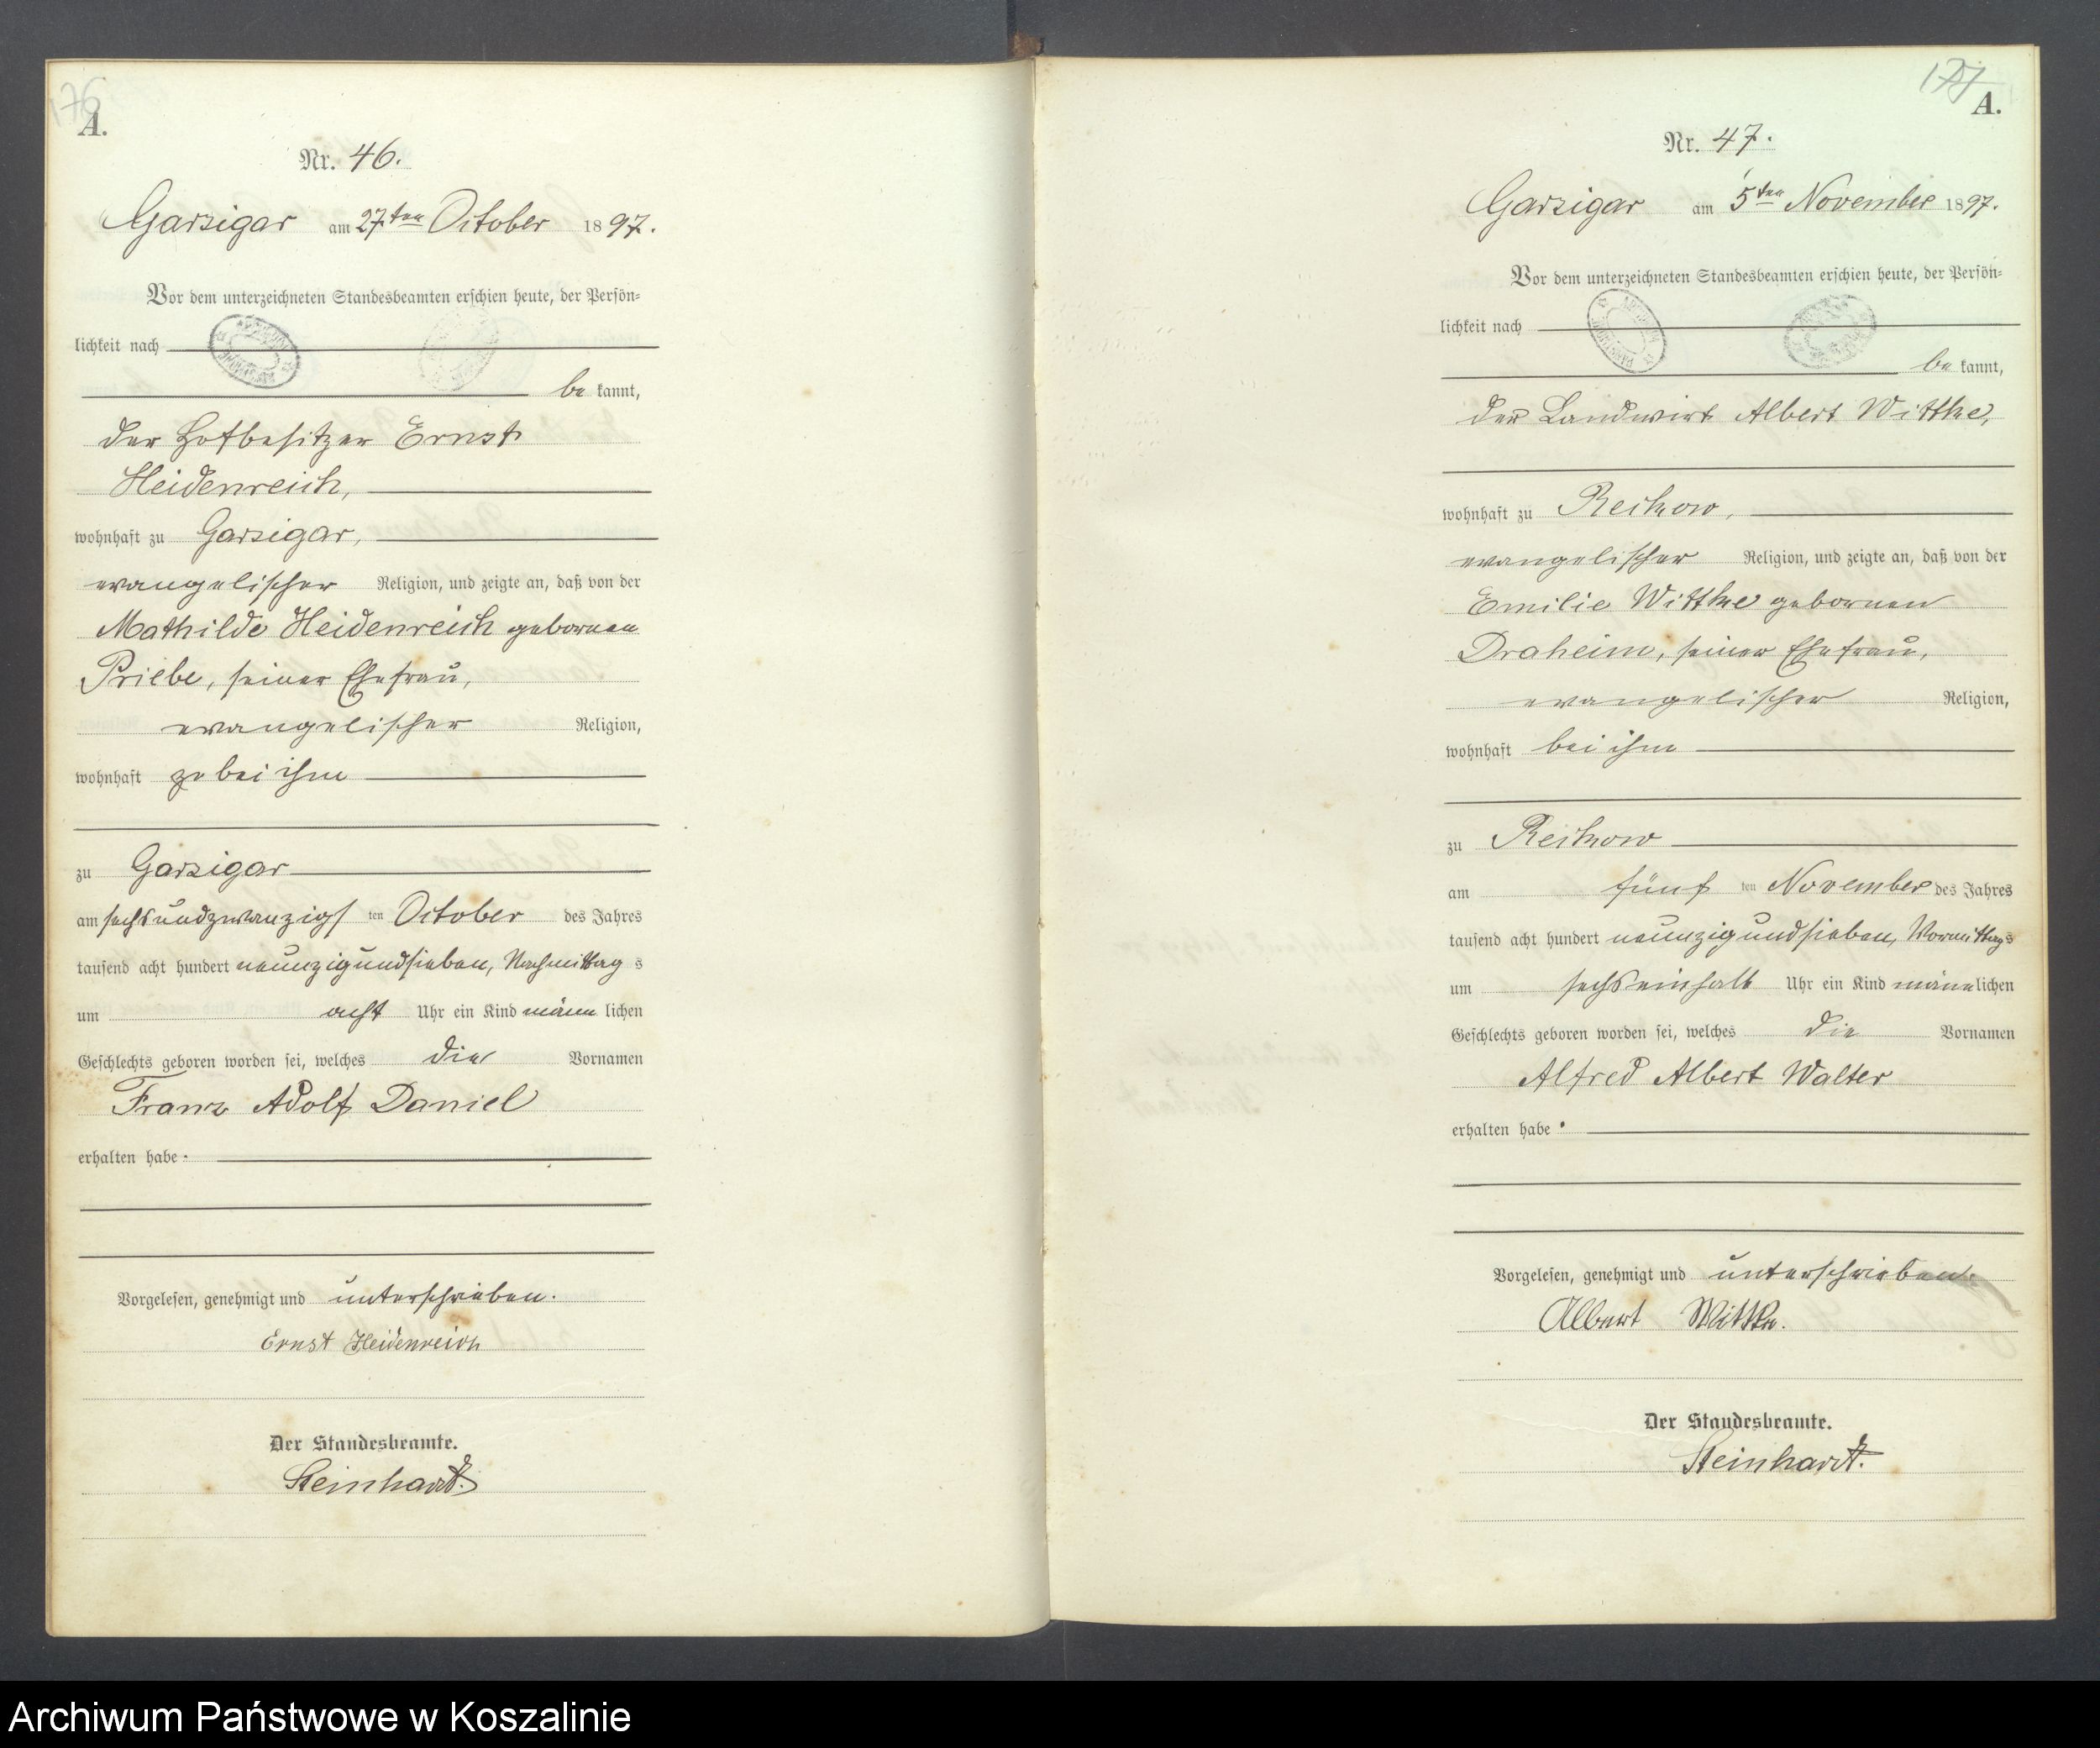 176
A.
Nr. 46.
Garzigar am 27ten October 1897.
Vor dem unterzeichneten Standesbeamten erschien heute, der Persön=
lichkeit nach
be kannt,
der Hofbesitzer Ernst
Heidenreich,
wohnhaft zu Garzigar,
evangelischer Religion, und zeigte an, daß von der
Mathilde Heidenreich gebornen
Priebe, seiner Ehefrau,
evangelischer Religion,
wohnhaft zu bei ihm
zu Garzigar
am sechsundzwanzigs ten October des Jahres
tausend acht hundert neunzigundsieben, Nachmittag s
um acht Uhr ein Kind männ lichen
Geschlechts geboren worden sei, welches die Vornamen
Franz Adolf Daniel
erhalten habe.
Vorgelesen, genehmigt und unterschrieben.
Ernst Heidenreich
Der Standesbeamte.
Steinhardt.
177
A.
Nr. 47.
Garzigar am 5ten November 1897.
Vor dem unterzeichneten Standesbeamten erschien heute, der Persön=
lichkeit nach
be kannt,
der Landwirt Albert Witthe,
wohnhaft zu Reckow,
evangelischer Religion, und zeigte an, daß von der
Emilie Witthe gebornen
Draheim, seiner Ehefrau,
evangelischer Religion,
wohnhaft bei ihm
zu Reckow
am fünf ten November des Jahres
tausend acht hundert neunzigundsieben, Vormittags
um sechseinhalb Uhr ein Kind männlichen
Geschlechts geboren worden sei, welches die Vornamen
Alfred Albert Walter
erhalten habe.
Vorgelesen, genehmigt und unterschrieben.
Albert
Der Standesbeamte.
Steinhardt.
Archiwum Państwowe w Koszalinie